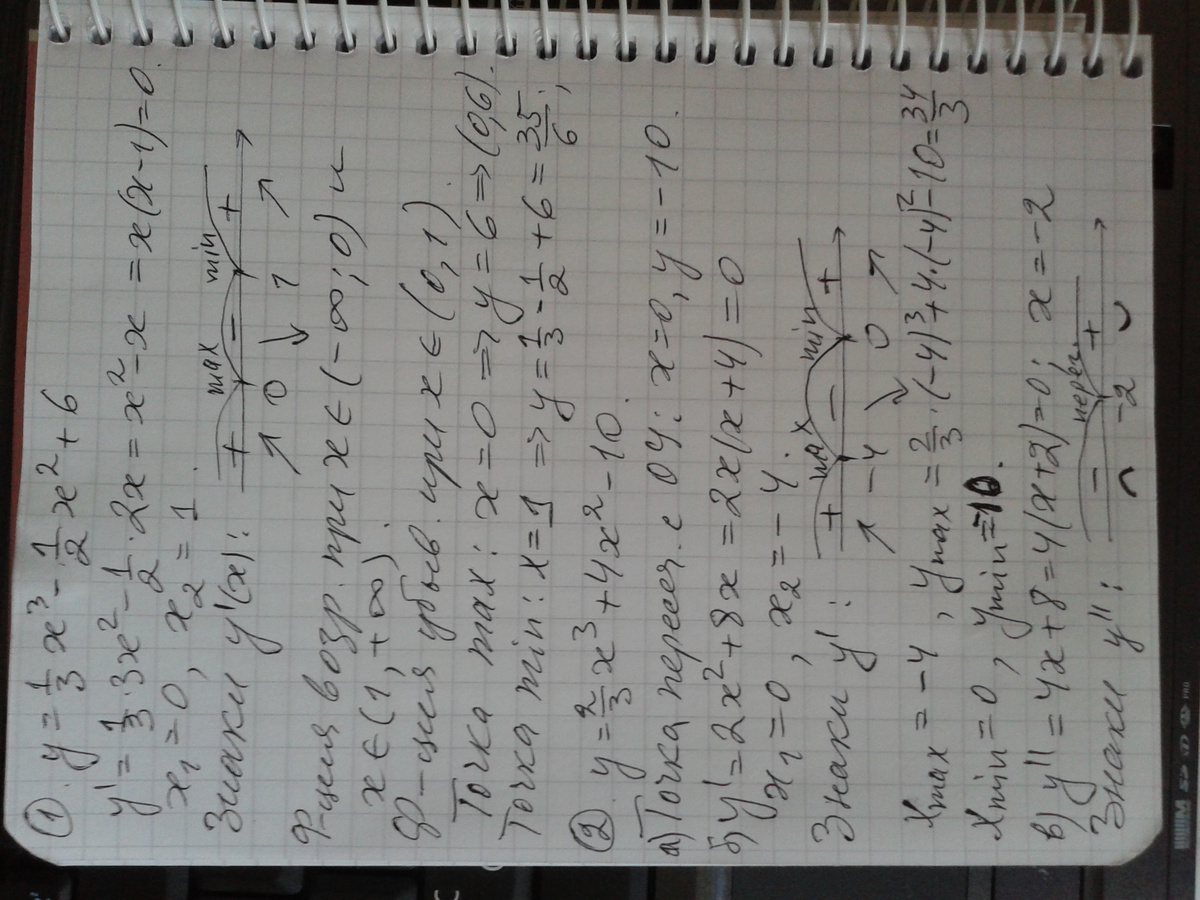 ① y = 1/3 x³ - 1/2 x² + 6
y' = 1/3 · 3x² - 1/2 · 2x = x² - x = x(x-1) = 0.
x₁ = 0, x₂ = 1.
Знаки y'(x):
max min
+ - +
↗ 0 ↘ 1 ↗
Ф-ция возр. при x ∈ (-∞; 0) и
x ∈ (1, +∞).
Ф-ция убыв. при x ∈ (0, 1).
Точка max: x = 0 ⇒ y = 6 ⇒ (0,6).
Точка min: x = 1 ⇒ y = 1/3 - 1/2 + 6 = 35/6;
② y = 2/3 x³ + 4x² - 10.
а) Точка пересеч. с OY: x = 0, y = -10.
б) y' = 2x² + 8x = 2x(x+4) = 0
x₁ = 0, x₂ = -4.
Знаки y':
max min
+ - +
↗ -4 ↘ 0 ↗
Xmax = -4, ymax = 2/3 · (-4)³ + 4 · (-4)² - 10 = 34/3
Xmin = 0, ymin = -10.
в) y'' = 4x + 8 = 4(x+2) = 0; x = -2
Знаки y'':
перег.
- +
∩ -2 ∪